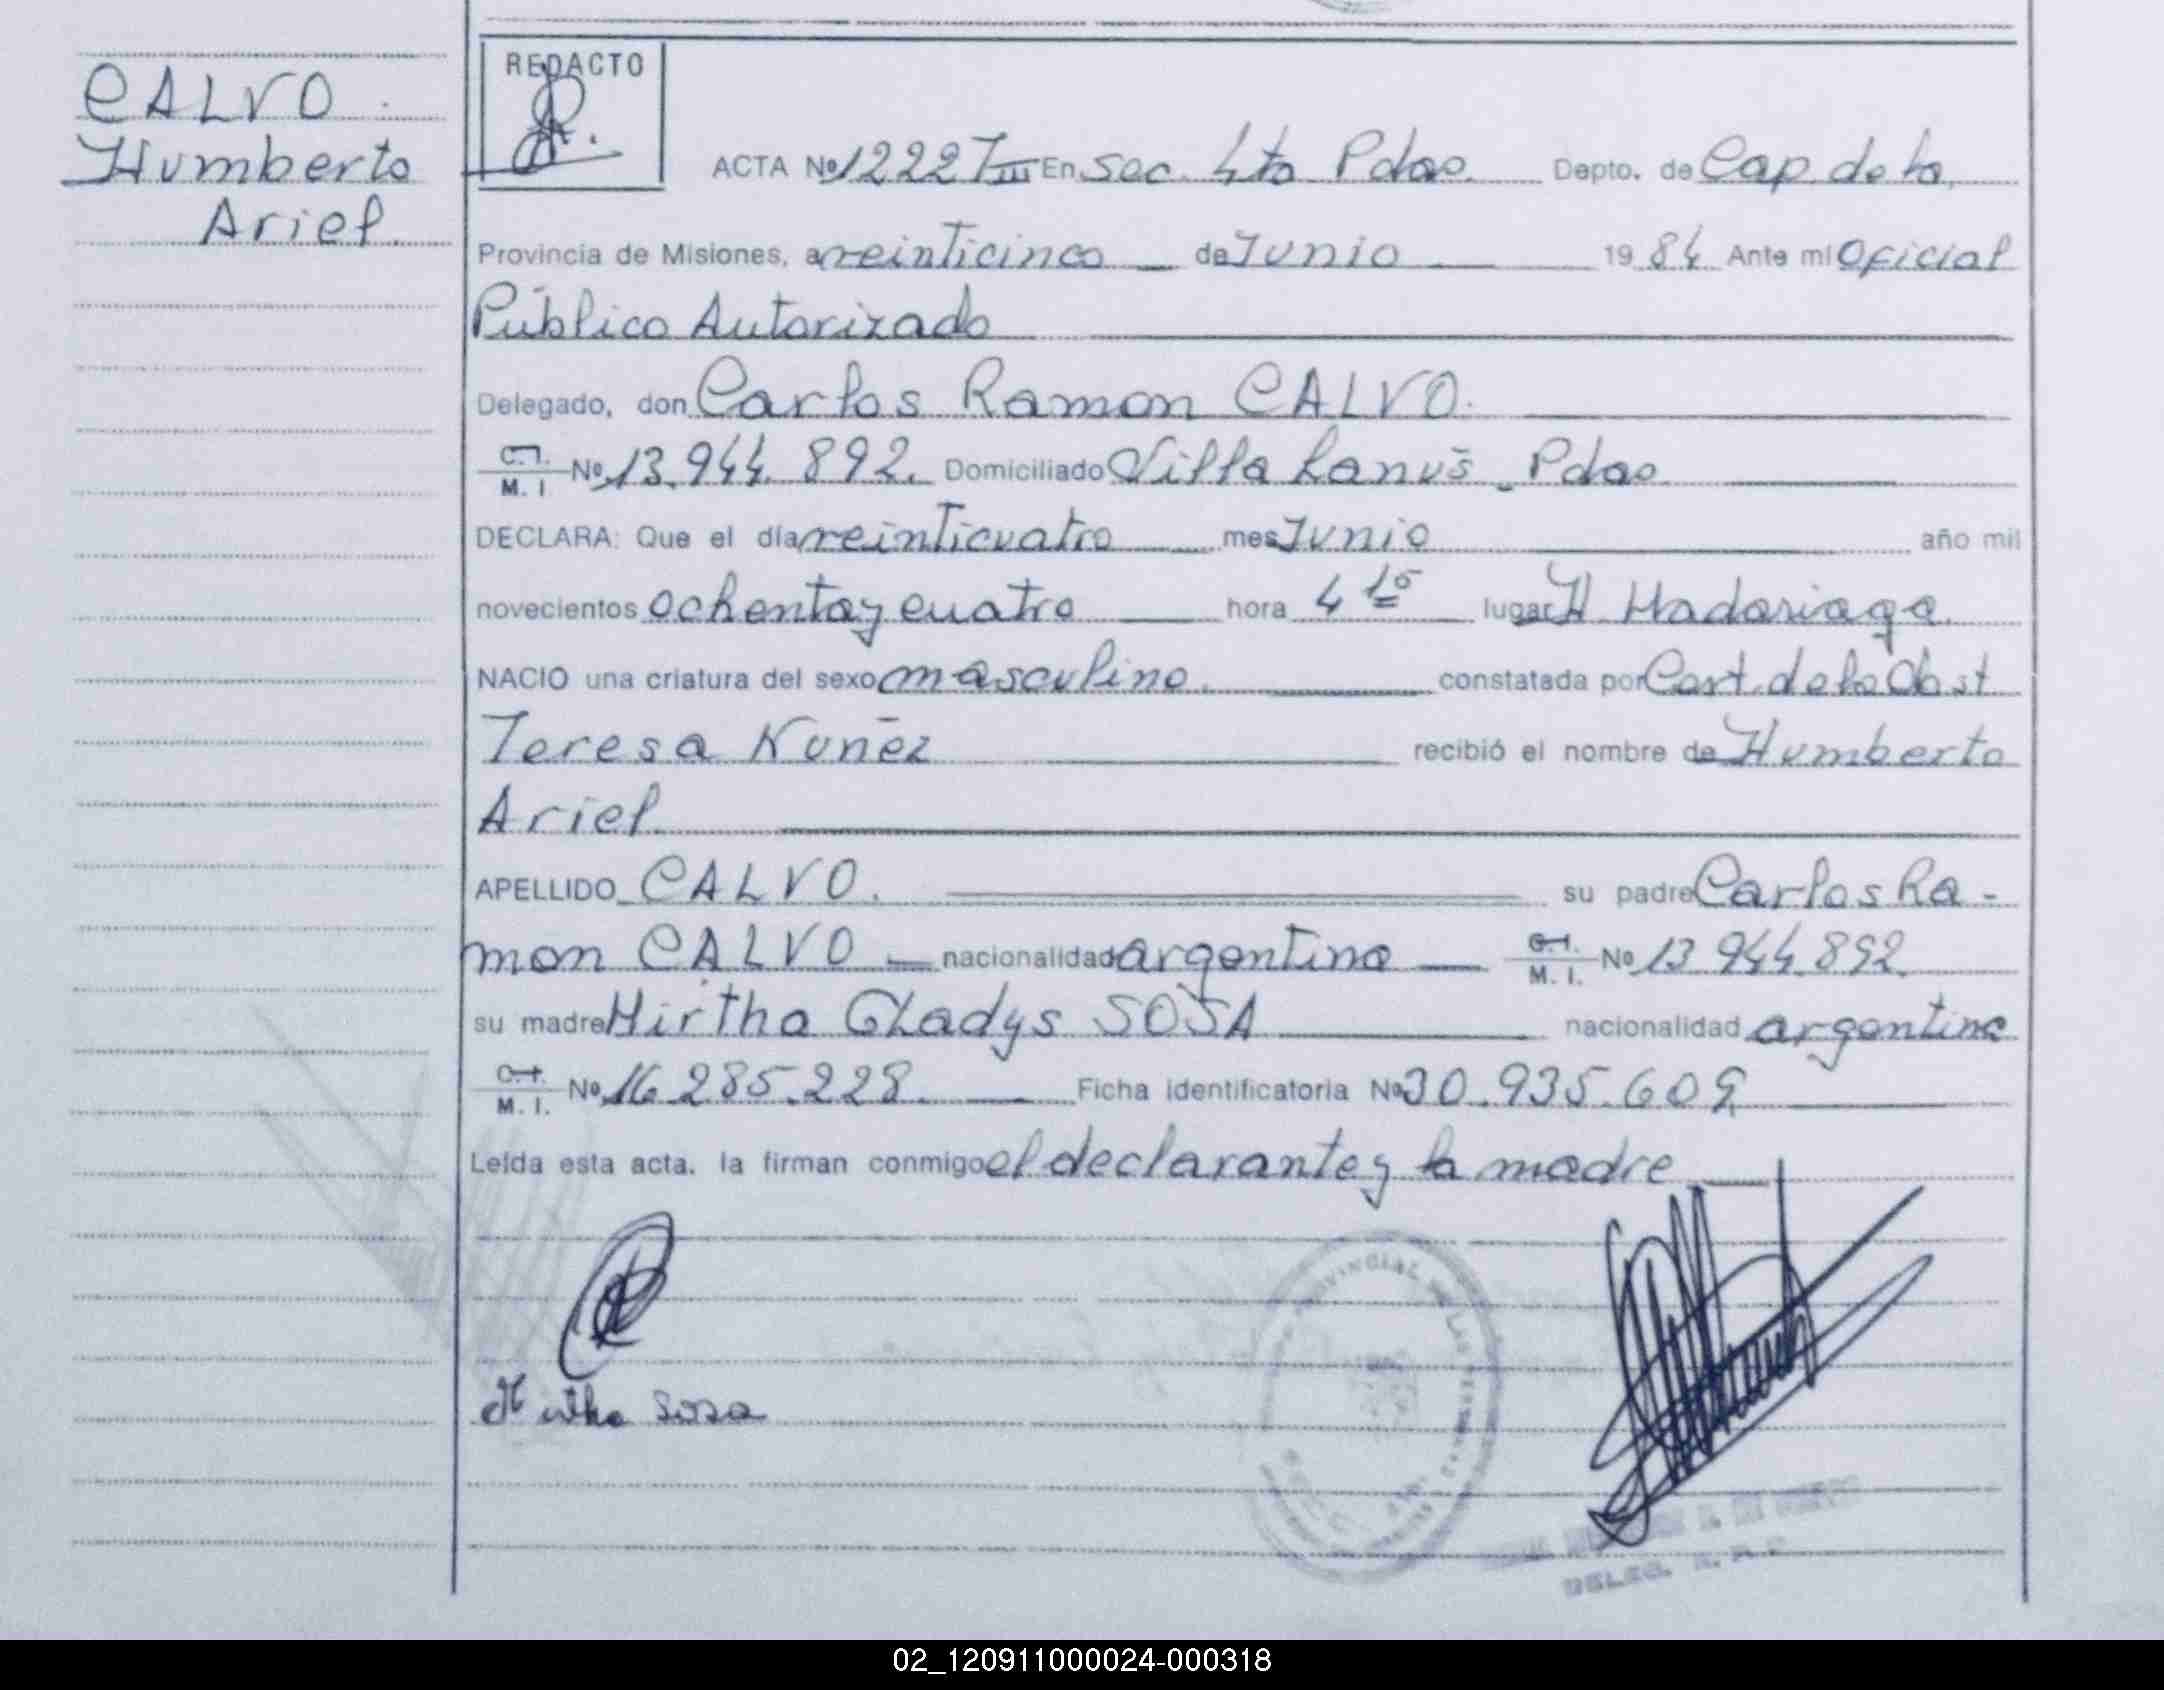 CALVO
Humberto
Ariel
REDACTO
ACTA Nº 1222 T III En Sec. 4ta Pdas. Depto. de Cap. de la
Provincia de Misiones, a veinticinco de Junio 19 84 Ante mi Oficial
Público Autorizado
Delegado, don Carlos Ramon CALVO.
C.I. M. I Nº 13.944.892. Domiciliado Villa Lanús - Pdas.
DECLARA: Que el día veinticuatro mes Junio año mil
novecientos ochenta y cuatro hora 4 15 lugar H Madariaga.
NACIO una criatura del sexo masculino. constatada por Cert. de la Obst
Teresa Nuñez recibió el nombre de Humberto
Ariel
APELLIDO CALVO. su padre Carlos Ra-
mon CALVO nacionalidad argentina C.I. M. I. Nº 13.944.892.
su madre Mirtha Gladys SOSA nacionalidad argentina
C.I. M. I. Nº 16.285.228. Ficha identificatoria Nº 30.935.609
Leída esta acta. la firman conmigo el declarante y la madre
Mirtha Sosa
PROVINCIAL DE LAS PERSONAS
DELEG. R. P.
02_120911000024-000318